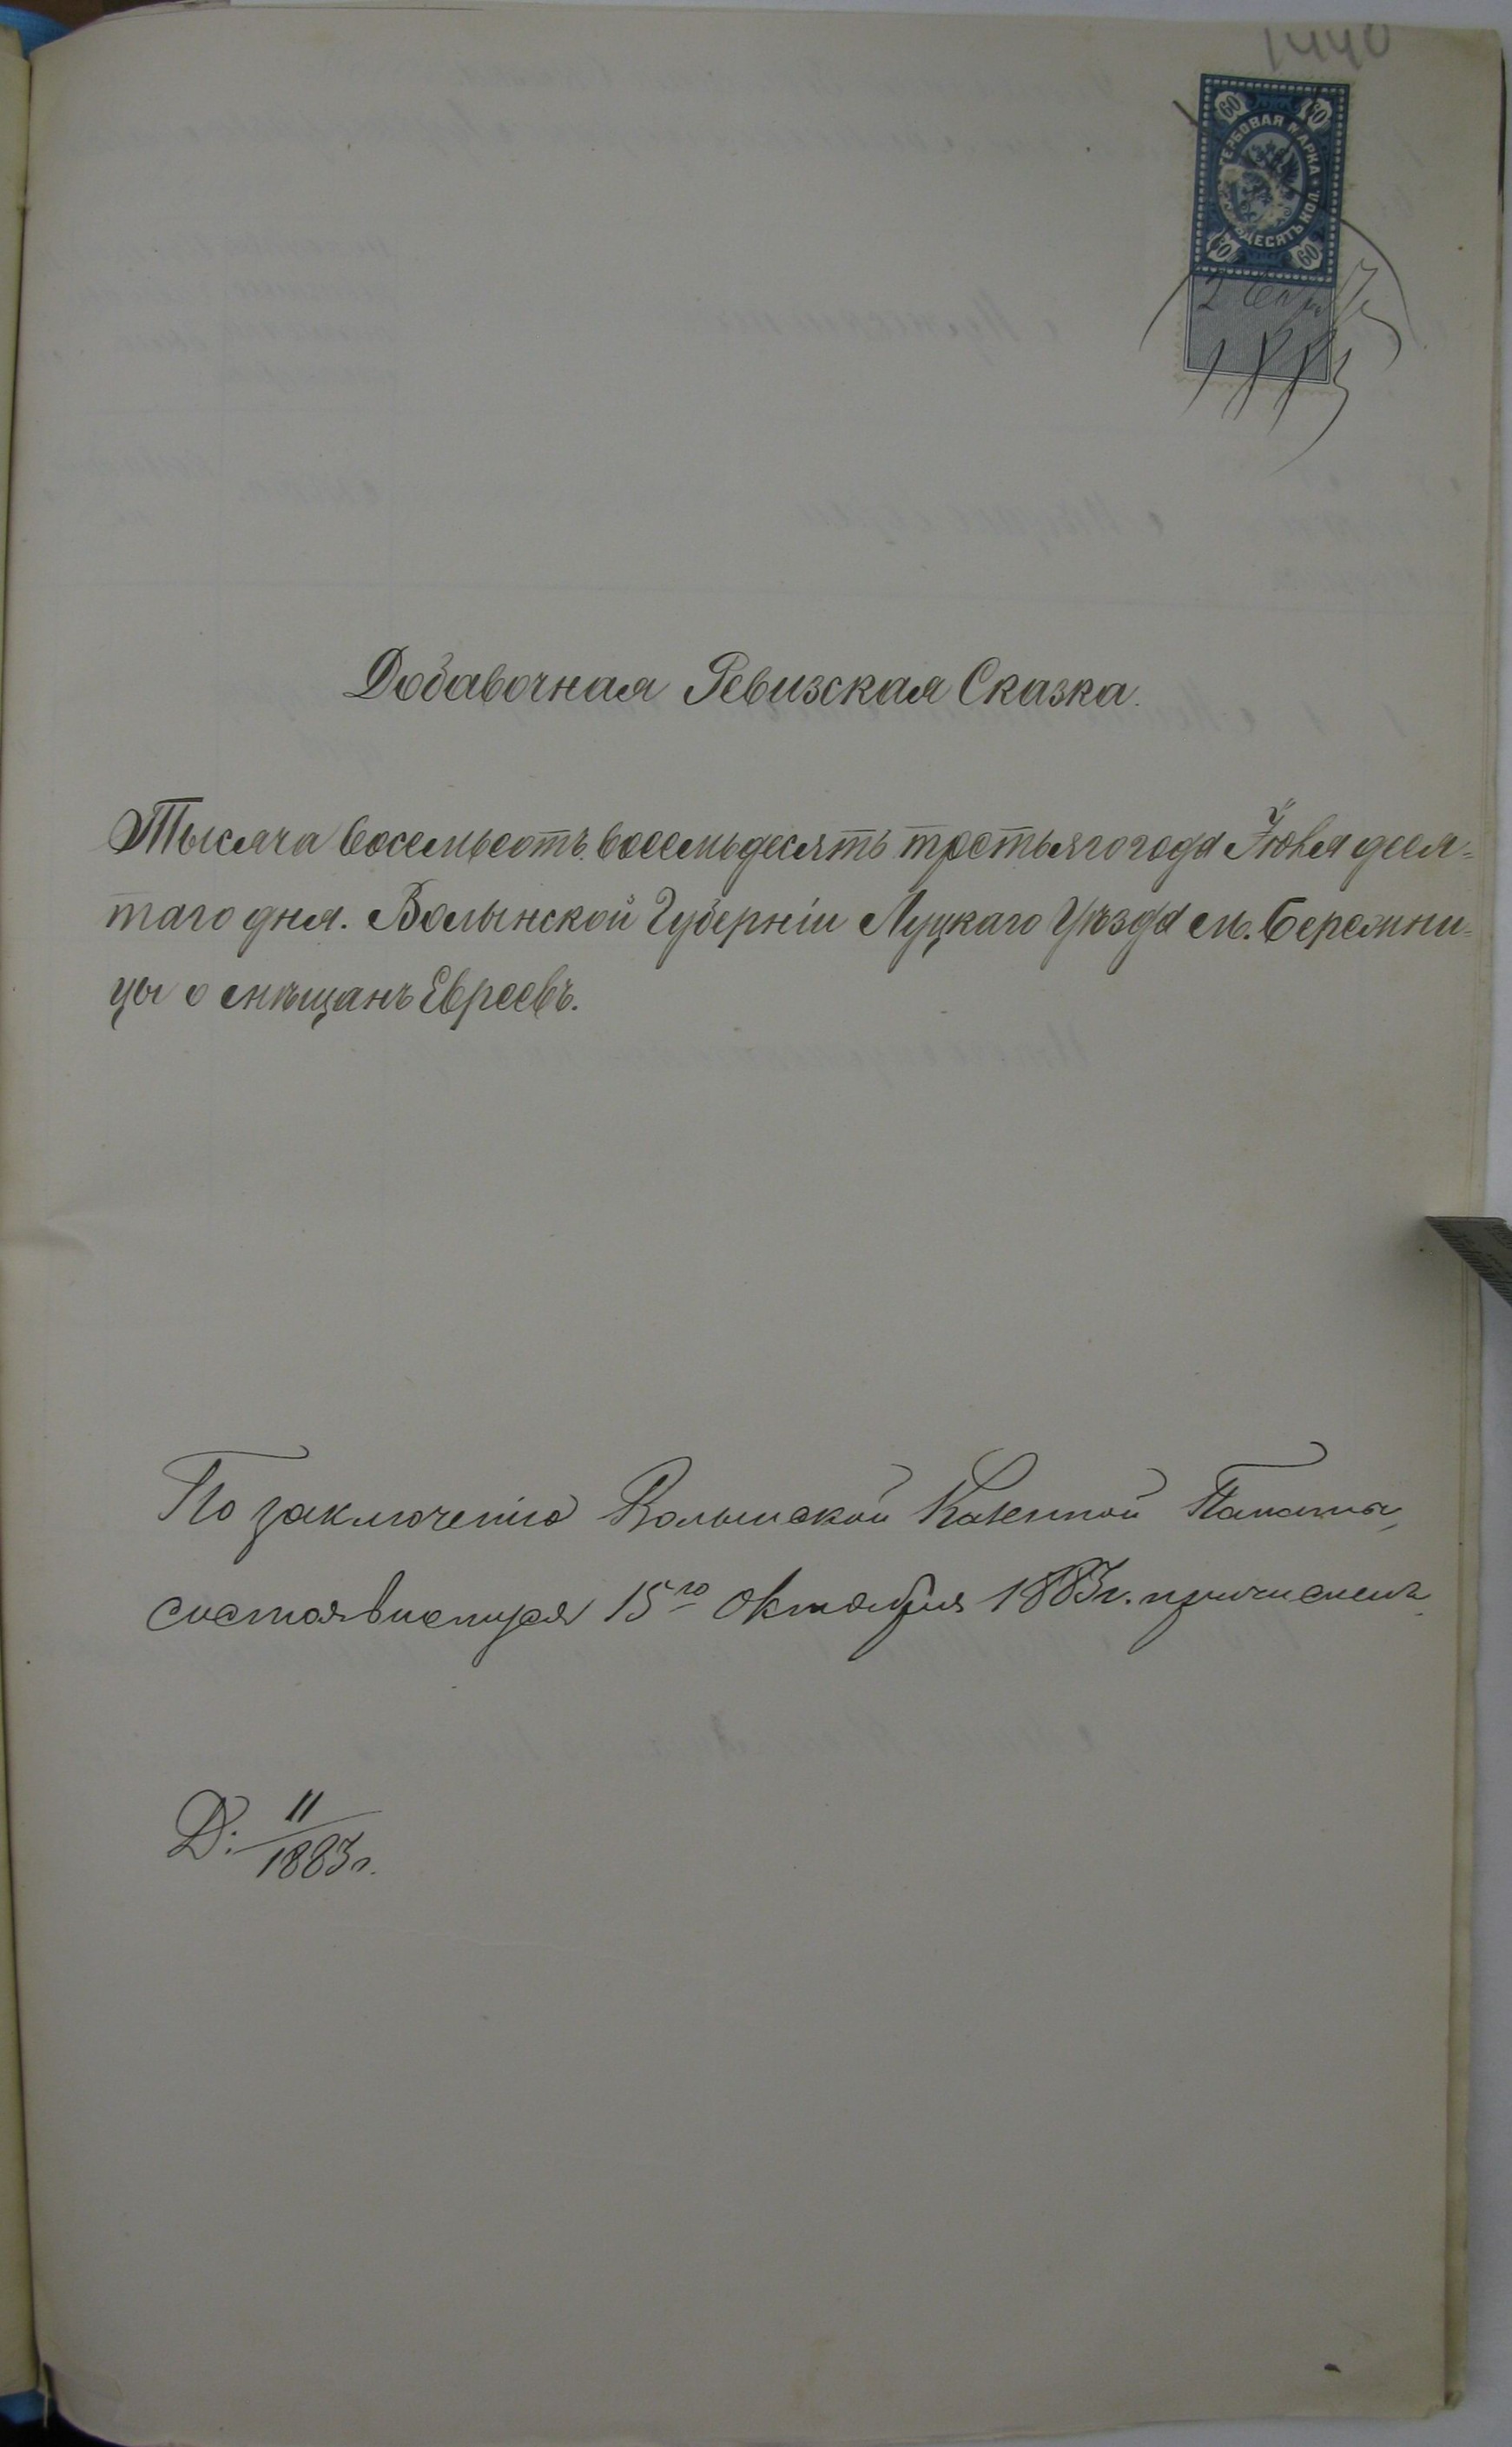 1440
60 60
ГЕРБОВАЯ МАРКА
ДЕСЯТЬ КОП.
60 60
2
1883
Добавочная Ревизская Сказка.
Тысяча восемьсотъ восемьдесятъ третьяго года Іюня деся=
таго дня. Волынской Губерніи Луцкаго Уѣзда м. Бережни=
цы о мѣщанъ Евреевъ.
По заключенію Волынской Казенной Палаты,
состоявшемуся 15го Октября 1883г. причисленъ
Д: 11/1883г.